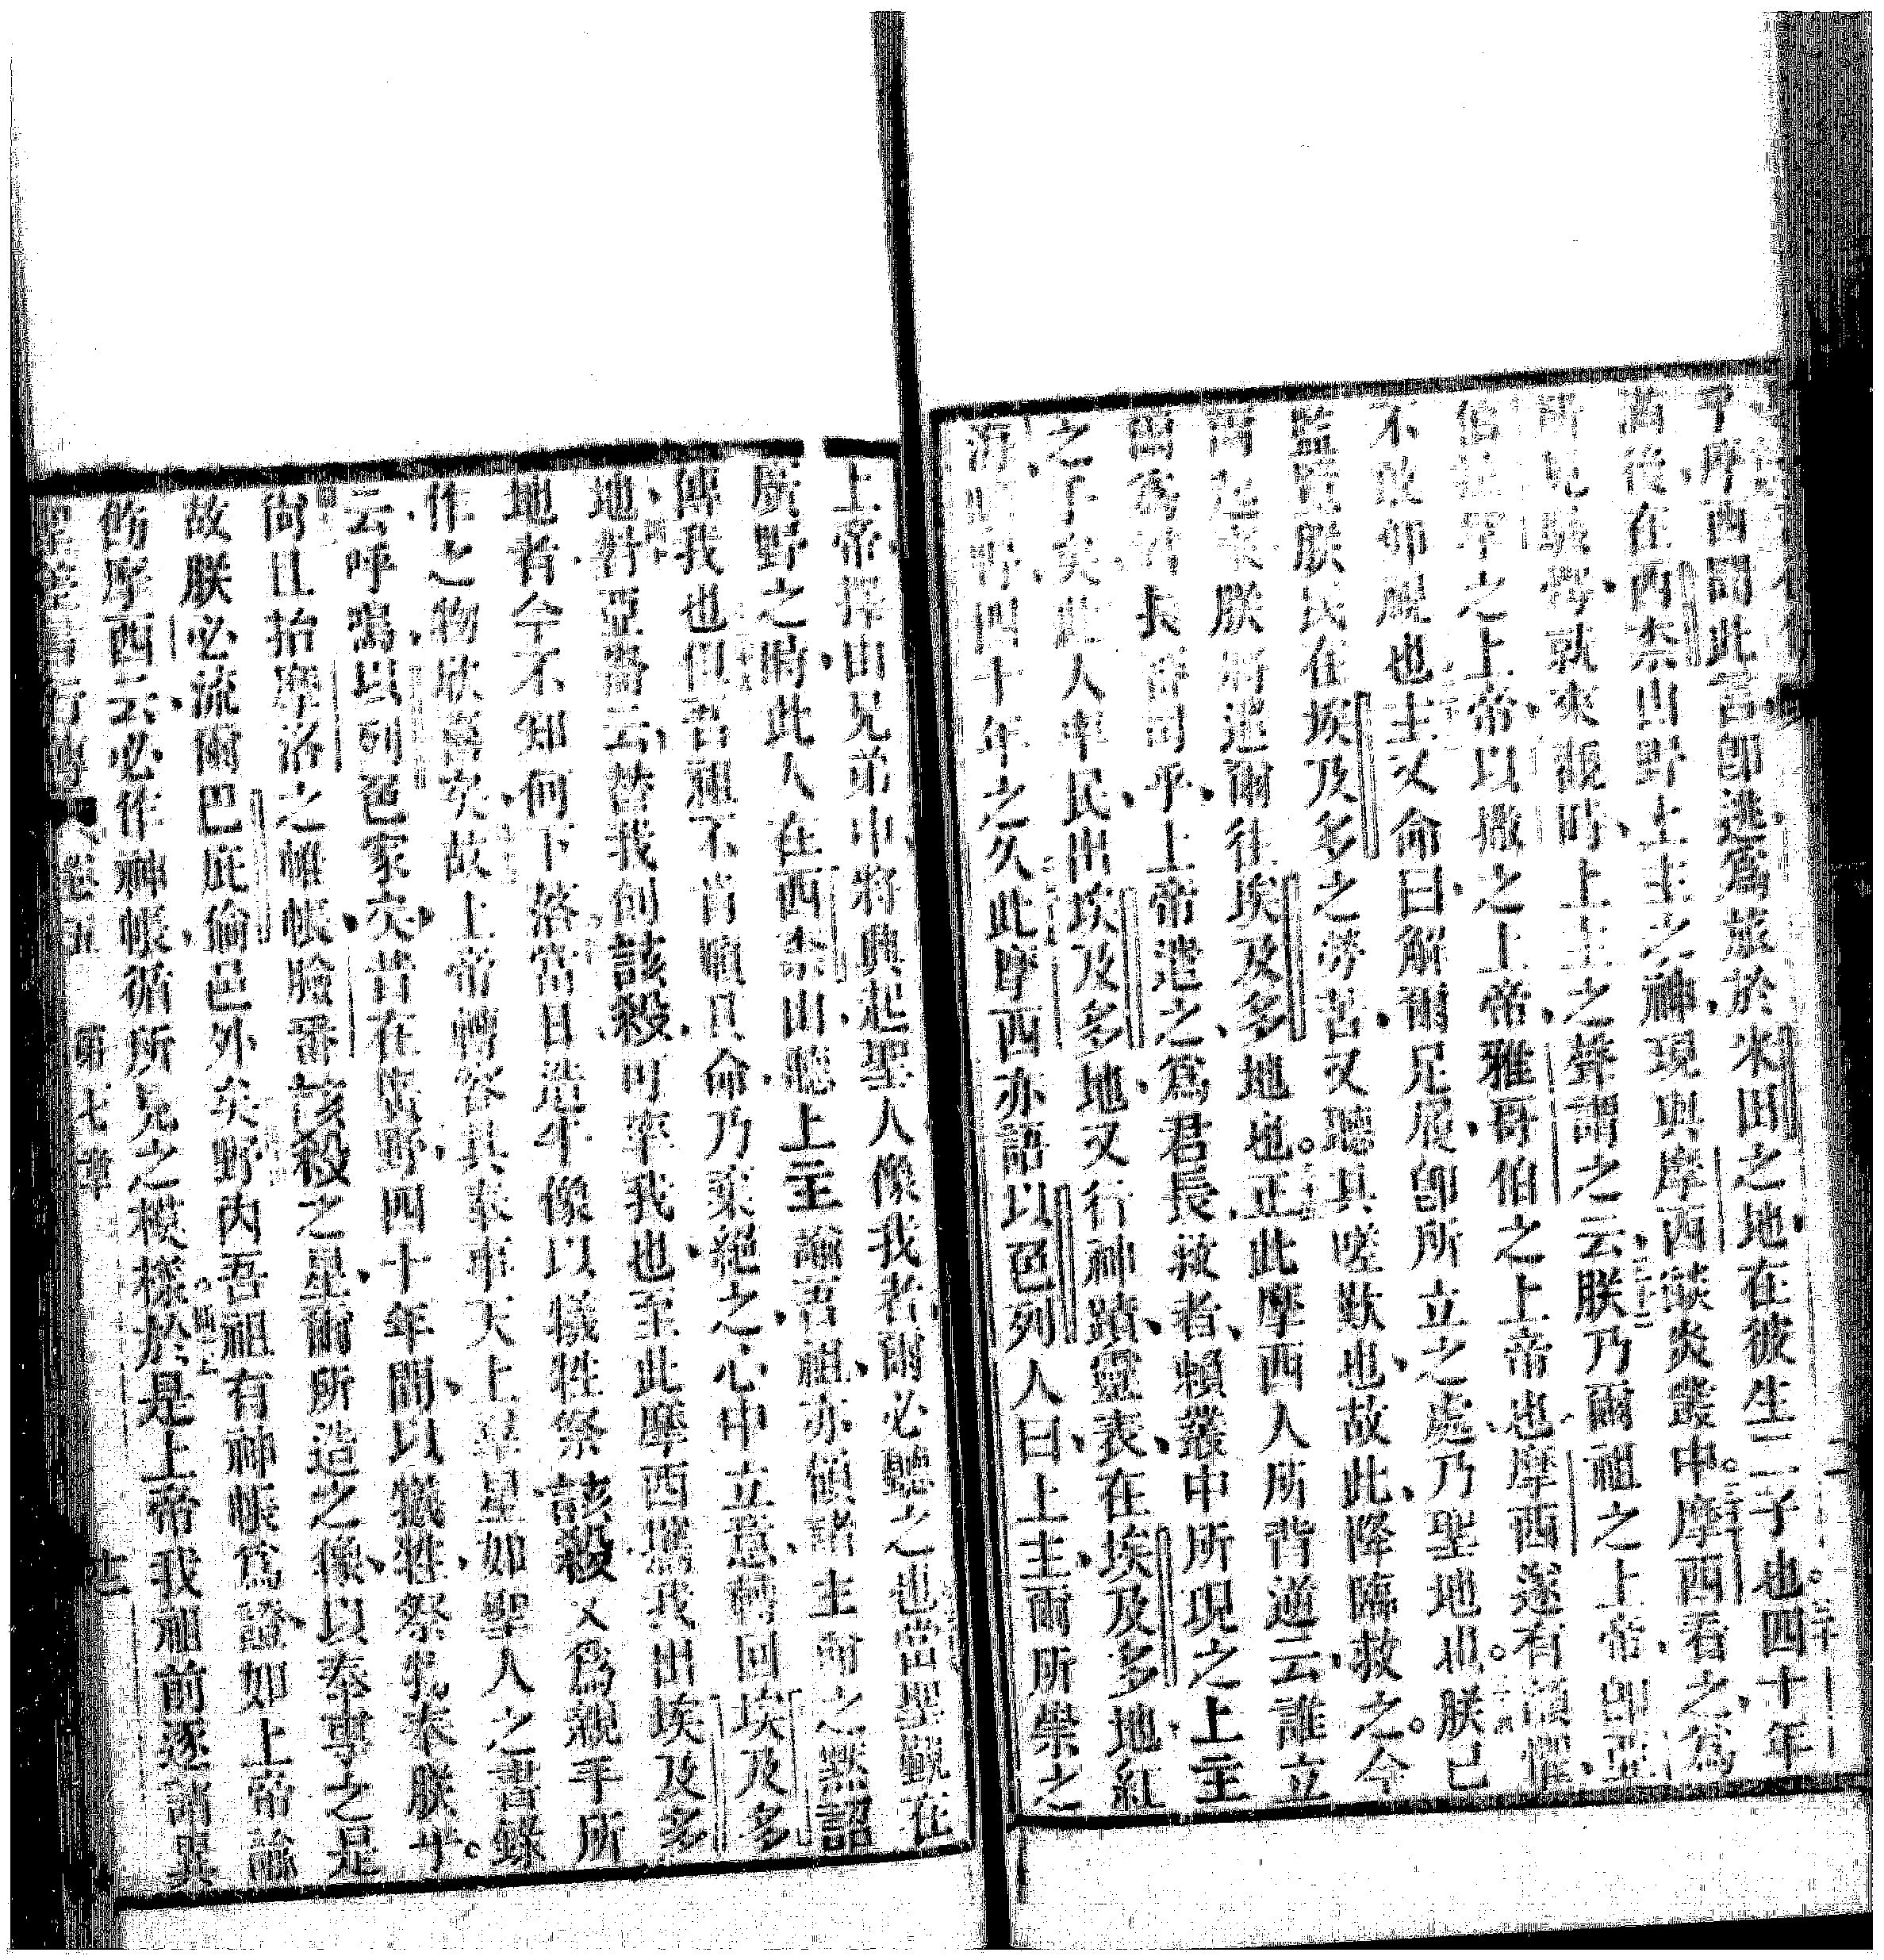 了摩西聞此言卽逃爲旅於米田之地在彼生二子也四十年
滿後在西柰山野上主之神現與摩西燄炎叢中摩西看之爲
所見駭愕就來觀時上主之聲謂之云朕乃爾祖之上帝卽亞
伯拉罕之上帝以撒之上帝雅哥伯之上帝也摩西遂有顫懼
不敢仰觀也主又命曰解爾足履卽所立之處乃聖地也朕已
監 朕民在埃及多之勞苦又聽其嗟歎也故此降臨救之今
爾起來朕將遣爾往埃及多地也正此摩西人所背逆云誰立
爾爲君長審司乎上帝遣之爲君長救者賴叢中所現之上主
之 矣此人率民出埃及多地又行神蹟靈表在埃及多地紅
海 野四十年之久此摩西亦語以色列人曰上主爾所崇之
上帝擇由兄弟中將興起聖人像我者爾必聽之也當聖 在
曠野之時此人在西柰山聽上主諭吾祖亦傾諸主命之默詔
傳我也但吾祖不肯順其命乃棄絕之心中立意轉回埃及多
地對亞崙云替我創該殺可率我也至此摩西攜我出埃及多
地者今不知何下落當日造牛像以犧牲祭該殺又爲親手所
作之物欣喜矣故上帝轉容其奉事天上羣星如聖人之書錄
云呼嗚以列色家矣昔在曠野四十年間以犧牲祭祀奉朕乎
尚且抬摩洛之帷帳臉番該殺之星爾所造之像以奉事之是
故朕必流爾巴庇倫邑外矣野內吾祖有神帳爲證如上帝諭
飭摩西云必作神帳循所見之模樣於是上帝我祖前逐諸異
行傳 卷五 第七章